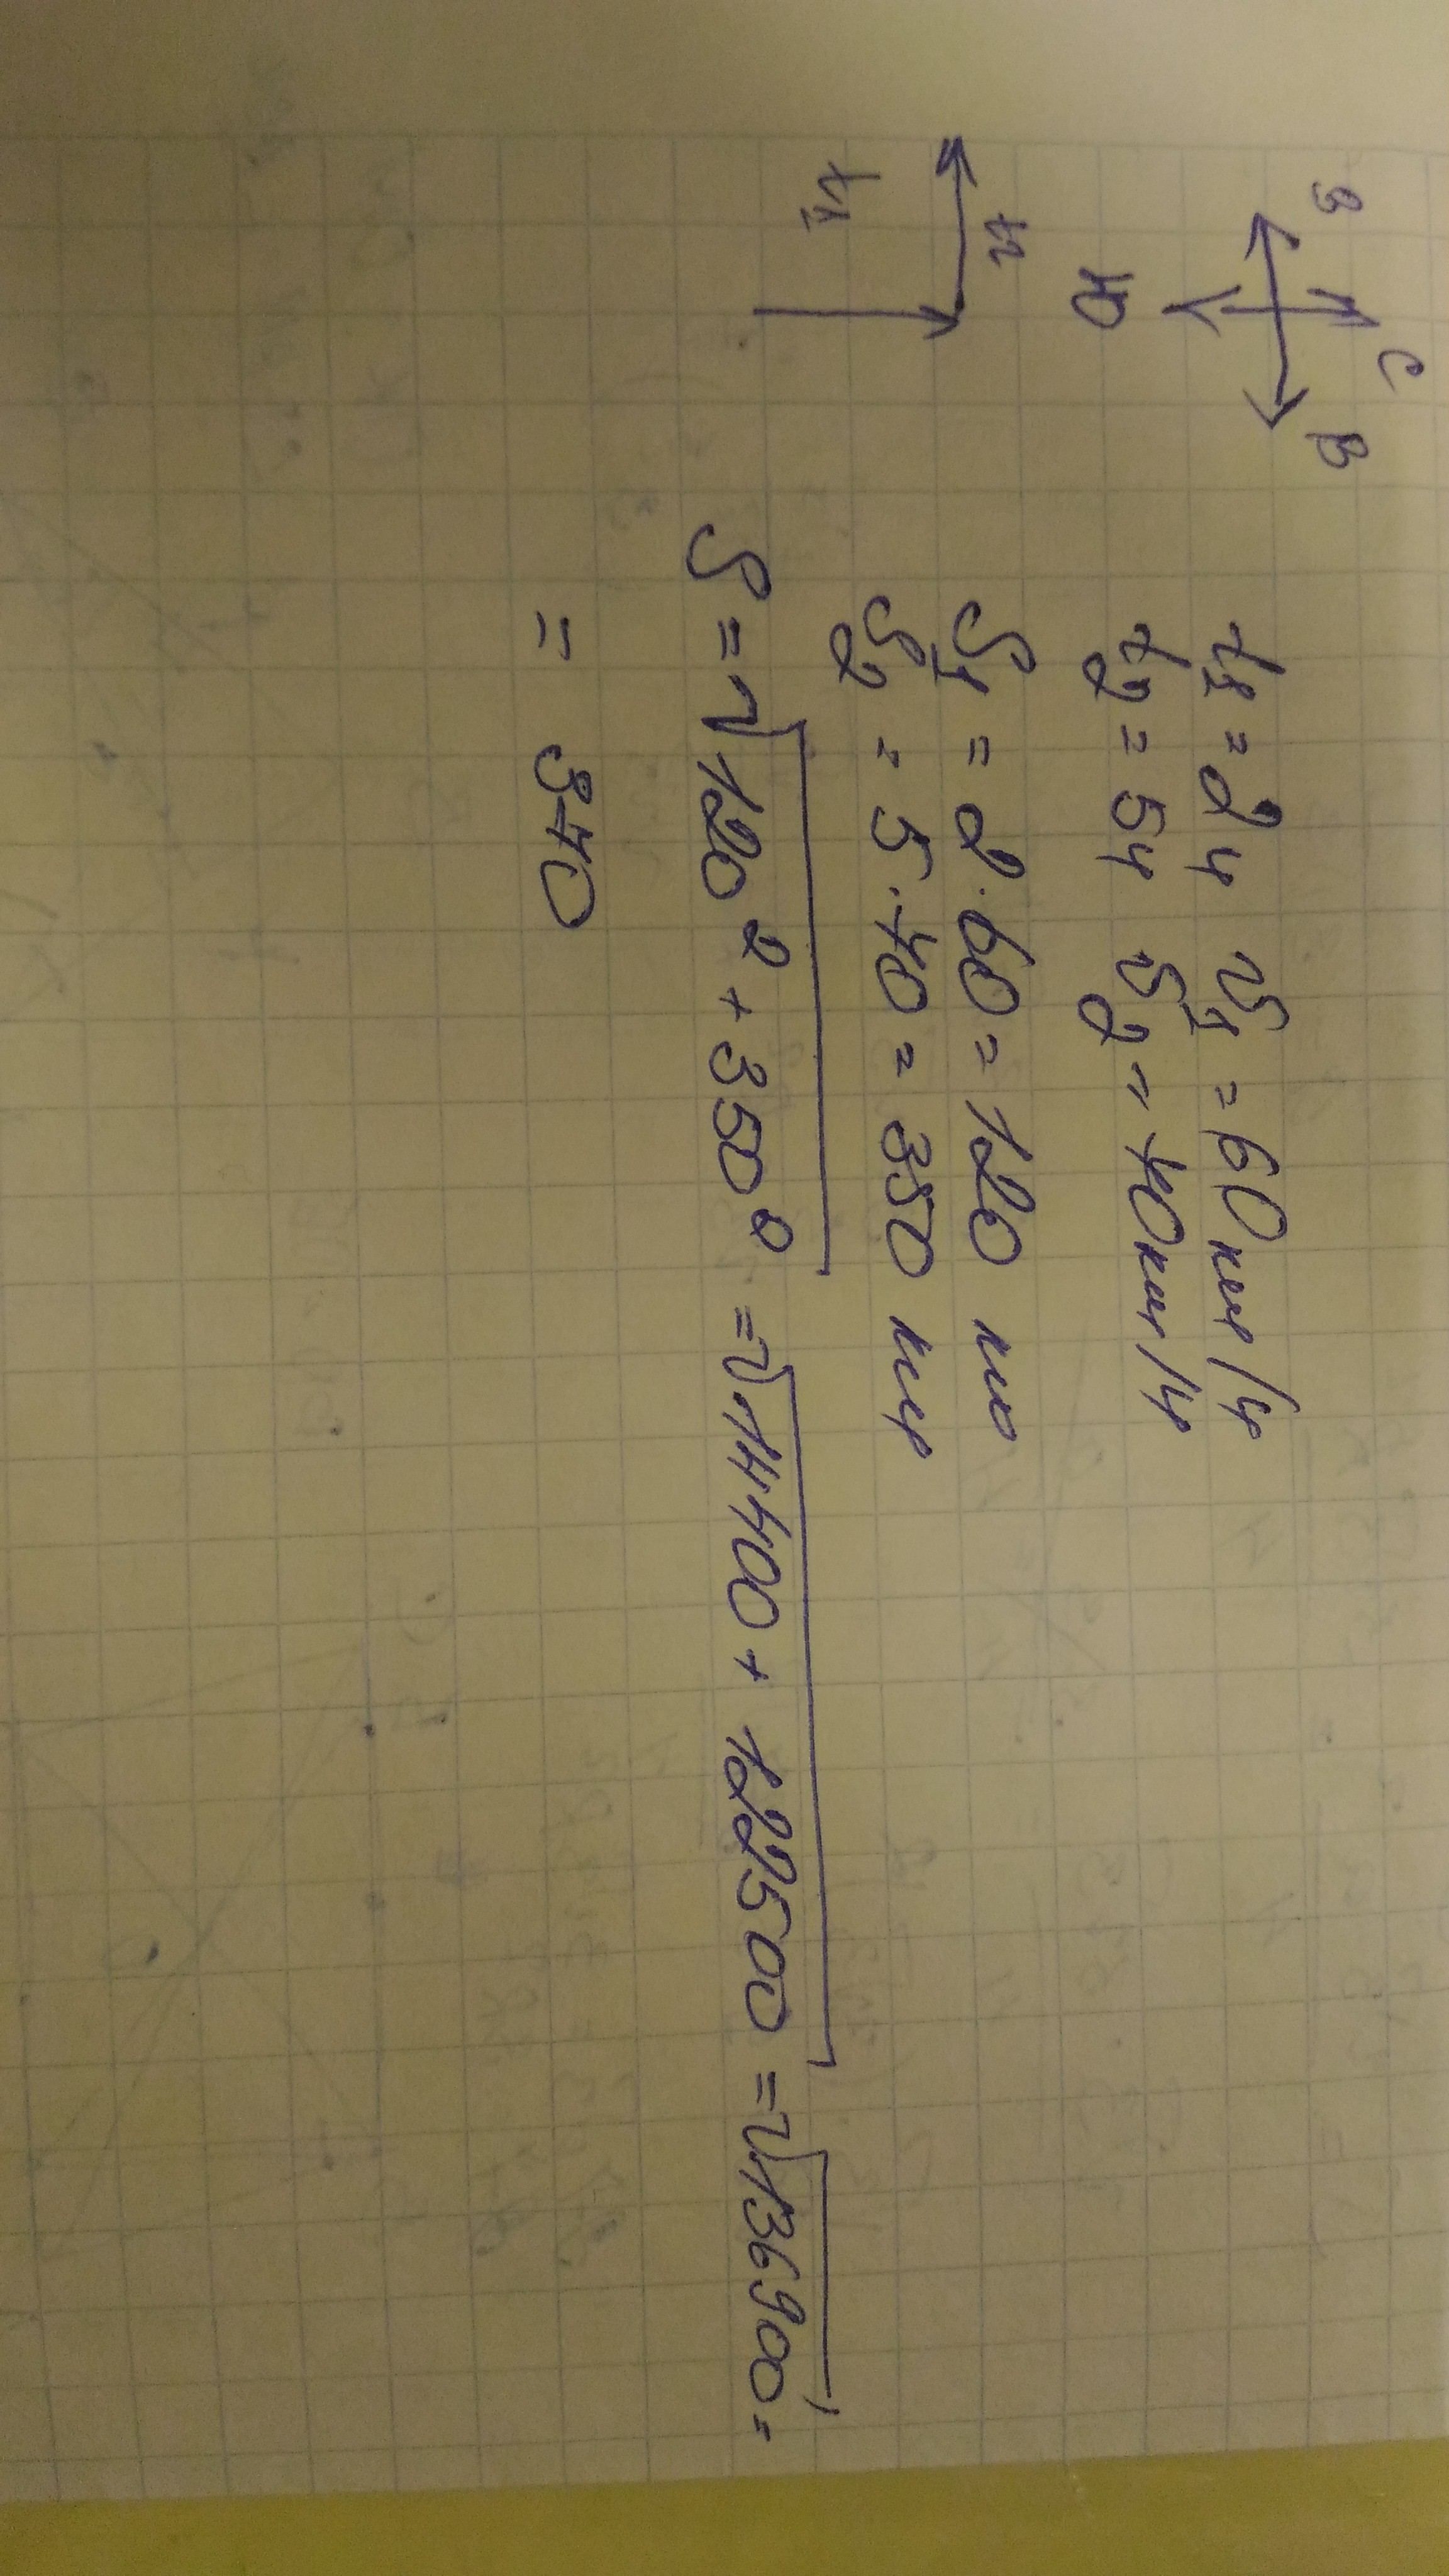 С
З В
Ю
t₁ = 2ч v₁ = 60км/ч
t₂ = 5ч v₂ = 70км/ч
S₁ = 2·60 = 120 км
S₂ = 5·70 = 350 км
t₂
t₁
S = √120² + 350² = √14400 + 122500 = √136900 =
= 370